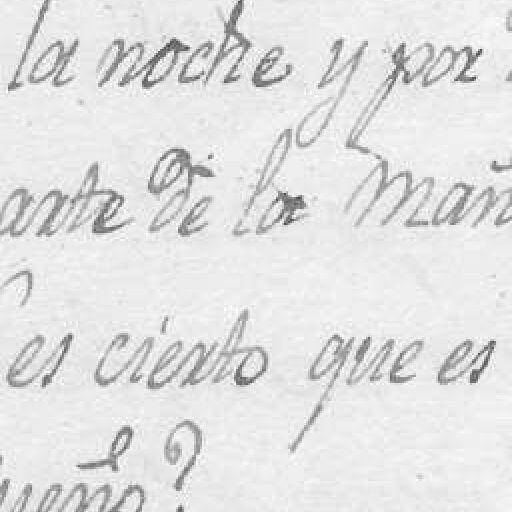 la noche y por
arte de la Mañ
es cierto que es
ueño?